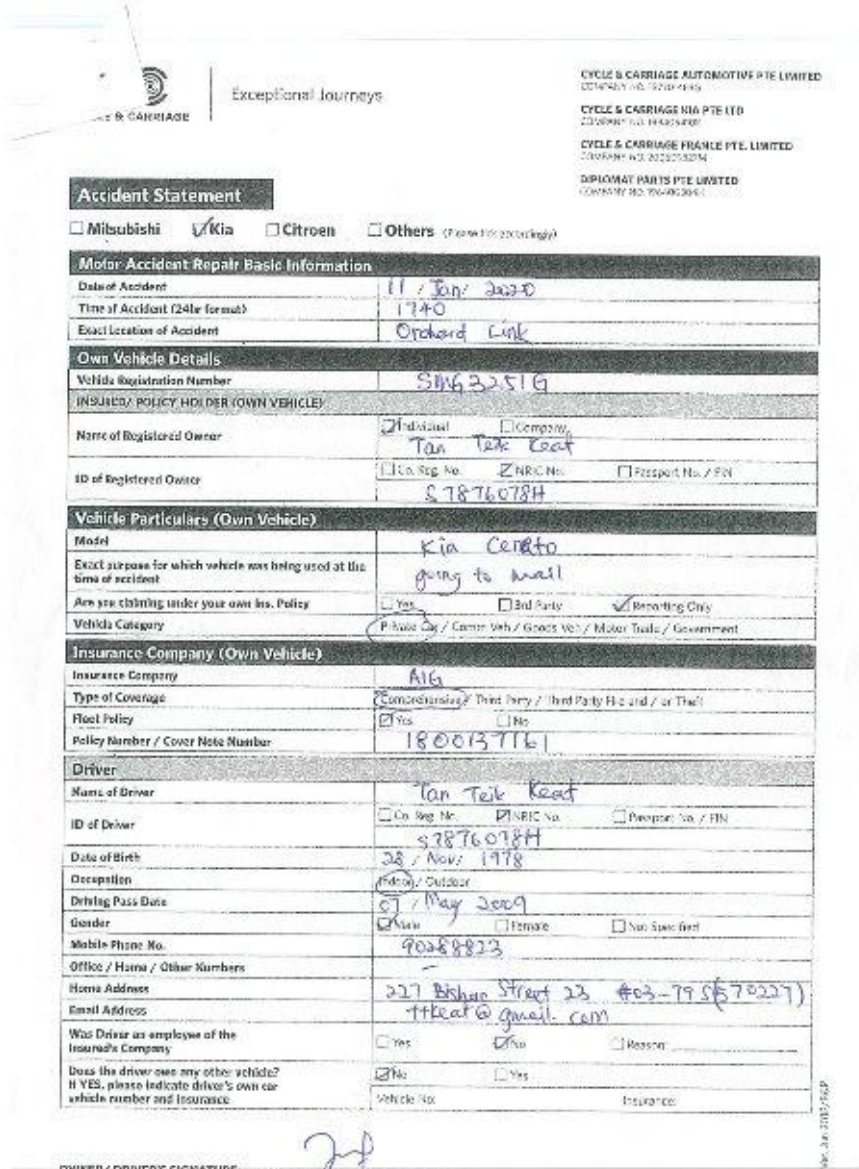 & CARRIAGE
Exceptional Journeys
CYCLE & CARRIAGE AUTOMOTIVE PTE LIMITED
COMPANY NO.
CYCLE & CARRIAGE KIA PTE LTD
COMPANY NO.
CYCLE & CARRIAGE FRANCE PTE. LIMITED
COMPANY NO.
DIPLOMAT PARTS PTE LIMITED
COMPANY NO.
Accident Statement
Mitsubishi Kia Citroen Others (Please tick accordingly)
Motor Accident Repair Basic Information
Date of Accident 11 / Jan / 2020
Time of Accident (24hr format) 1740
Exact Location of Accident Orchard Link
Own Vehicle Details
Vehicle Registration Number SMG3251G
INSURED/ POLICY HOLDER (OWN VEHICLE)
Name of Registered Owner Individual Company
Tan Teik Keat
ID of Registered Owner Co. Reg. No. NRIC No. Passport No. / FIN
S7876078H
Vehicle Particulars (Own Vehicle)
Model Kia Cerato
Exact purpose for which vehicle was being used at the time of accident going to mall
Are you claiming under your own Ins. Policy Yes 3rd Party Reporting Only
Vehicle Category Private Car / Comm Veh / Goods Veh / Motor Trade / Government
Insurance Company (Own Vehicle)
Insurance Company AIG
Type of Coverage Comprehensive / Third Party / Third Party Fire and / or Theft
Fleet Policy Yes No
Policy Number / Cover Note Number 1800137161
Driver
Name of Driver Tan Teik Keat
ID of Driver Co. Reg. No. NRIC No. Passport No. / FIN
S7876078H
Date of Birth 28 / Nov / 1978
Occupation Indoor / Outdoor
Driving Pass Date 07 / May 2009
Gender Male Female Not Specified
Mobile Phone No. 90288823
Office / Home / Other Numbers –
Home Address 227 Bishan Street 23 #03-795 (570227)
Email Address ttkeat@gmail.com
Was Driver an employee of the Insured's Company Yes No Reason:
Does the driver own any other vehicle? No Yes
If YES, please indicate driver's own car vehicle number and insurance Vehicle No: Insurance:
OWNER / DRIVER'S SIGNATURE